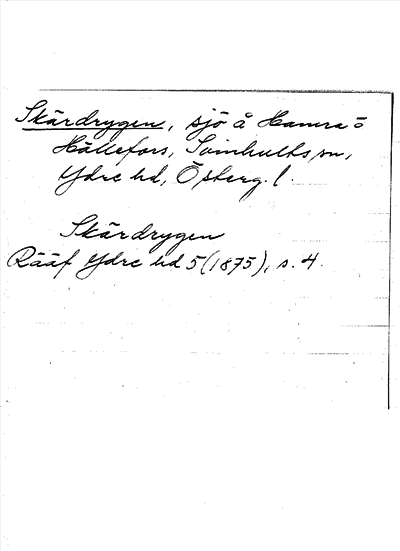 Skärdrygen, sjö å Hamra o
Hällefors, Svinhults sn,
Ydre hd, Österg. l.
Skärdrygen
Rääf Ydre hd 5 (1875), s. 4.